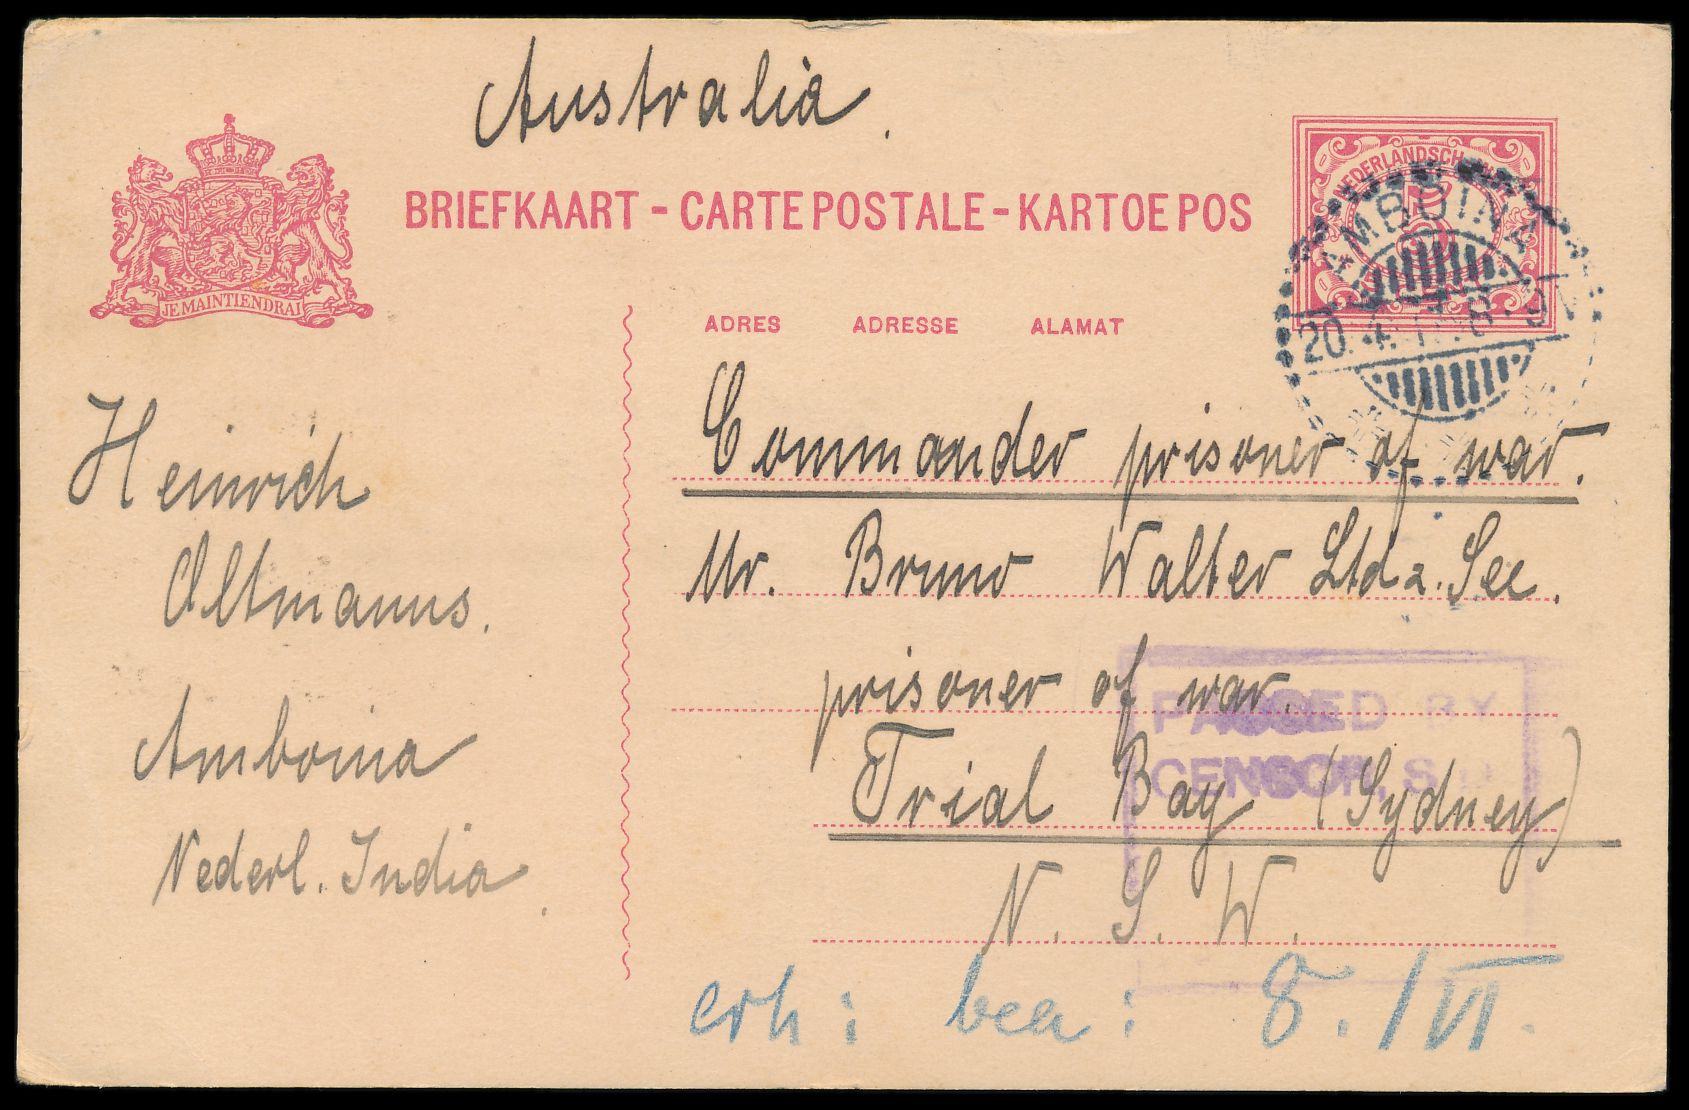 Australia.
BRIEFKAART - CARTE POSTALE - KARTOEPOS
JE MAINTIENDRAI
NEDERLANDSCH
5
AMBOINA
20.4.17.8-9V
ADRES ADRESSE ALAMAT
Commander prisoner of war.
Mr. Bruno Walter Ltd z. See.
prisoner of war.
Trial Bay (Sydney)
N. S. W.
Heinrich
Oltmanns.
Amboina
Nederl. India.
PASSED BY
CENSOR, S.
erh: bea: 8./VI.